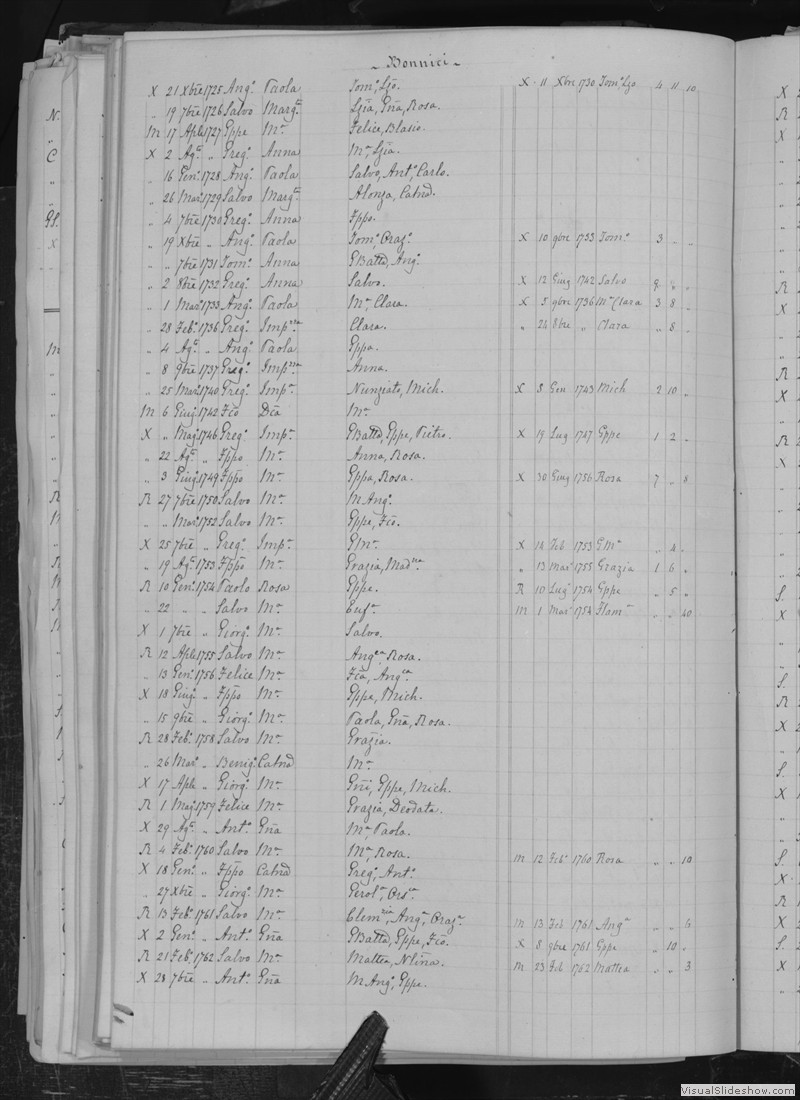 - Bonnici -
X 21 Xbre 1725 Ang.° Paola Tom.° Ljo. X 11 Xbre 1730 Tom.° Ljo 4 11 10
" 19 7bre 1726 Salvo Marg.ta Ljia, Gña, Rosa.
M 17 Aple 1727 Gppe M.a Felice, Blasio.
X 2 Ag.o " Greg.° Anna M.a Ljia.
" 16 Gen.° 1728 Ang.° Paola Salvo, Ant.° Carlo.
" 26 Mar.° 1729 Salvo Marg.ta Alonza, Catnd.
" 4 7bre 1730 Greg.° Anna Fppo.
" 19 Xbre " Ang.° Paola Tom.° Oraz.° X 10 9bre 1733 Tom.° 3 " "
" " 7bre 1731 Tom.° Anna GBatta, Ang.°
" 2 8bre 1732 Greg.° Anna Salvo. X 12 Giug 1742 Salvo 9 " "
" 1 Mar.° 1733 Ang.° Paola M.a Clara. X 5 9bre 1736 M.a Clara 3 8 "
" 28 Feb.° 1736 Greg.° Imp.ria Clara. " 24 8bre " Clara " 8 "
" 4 Ag.o " Ang.° Paola Gppa.
" 8 9bre 1737 Greg.° Imp.ria Anna.
" 25 Mar.° 1740 Greg.° Imp.a Nunziato, Mich. X 8 Gen 1743 Mich 2 10 "
M 6 Giug 1742 Fco Dca M.a
X " Mag.° 1746 Greg.° Imp.a GBatta, Gppe, Pietro. X 19 Lug 1747 Gppe 1 2 "
" 22 Ag.o " Fppo M.a Anna, Rosa.
" 3 Giug.° 1749 Fppo M.a Gppa, Rosa. X 30 Giug 1756 Rosa 7 " 8
R 27 7bre 1750 Salvo M.a M Ang.a
" " Mar.° 1752 Salvo M.a Gppe, Fco.
X 25 7bre " Greg.° Imp.a GM.a X 14 Feb 1753 GM.a " 4 "
" 19 Ag.o 1753 Fppo M.a Grazia, Mad.na " 13 Mar.° 1755 Grazia 1 6 "
R 10 Gen.° 1754 Paolo Rosa Gppe. R 10 Lug.° 1754 Gppe " 5 "
" 22 " " Salvo M.a Euf.a M 1 Mar.° 1754 " " 40
X 1 7bre " Giorg.° M.a Salvo.
R 12 Aple 1755 Salvo M.a Ang.ca Rosa.
" 13 Gen.° 1756 Felice M.a Fca, Ang.ca
X 18 Giug.° " Fppo M.a Gppe, Mich.
" 15 9bre " Giorg.° M.a Paola, Gña, Rosa.
R 28 Feb.° 1758 Salvo M.a Grazia.
" 26 Mar.° " Benig.° Catnd M.a
X 17 Aple " Giorg.° M.a Gñi, Gppe, Mich.
R 1 Mag.° 1759 Felice M.a Grazia, Deodata.
X 29 Ag.o " Ant.° Gña M.a Paola.
R 4 Feb.° 1760 Salvo M.a M.a Rosa. M 12 Feb.° 1760 Rosa " " 10
X 18 Gen.° " Fppo Catnd Greg.° Ant.°
" 27 Xbre " Giorg.° M.a Gerol.a Ors.la
R 13 Feb.° 1761 Salvo M.a Clem.zia, Ang.a Oraz.a M 13 Feb 1761 Ang.a " " 6
X 2 Gen.° " Ant.° Gña GBatta, Gppe, Fco. X 8 9bre 1761 Gppe " 10 "
R 21 Feb.° 1762 Salvo M.a Mattea, Nlina. M 23 Feb 1762 Mattea " " 3
X 28 7bre " Ant.° Gña M Ang.a, Gppe.
VisualSlideshow.com